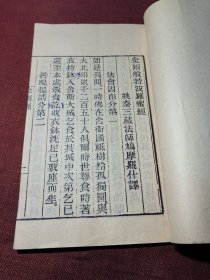 金剛般若波羅蜜經
姚秦三藏法師鳩摩羅什譯
法會因由分第一
如是我聞一時佛在舍衛國祇樹給孤獨園與
大比丘眾千二百五十人俱爾時世尊食時著
衣持鉢入舍衛大城乞食於其城中次第乞已
還至本處飯食訖收衣鉢洗足已敷座而坐
善現起請分第二